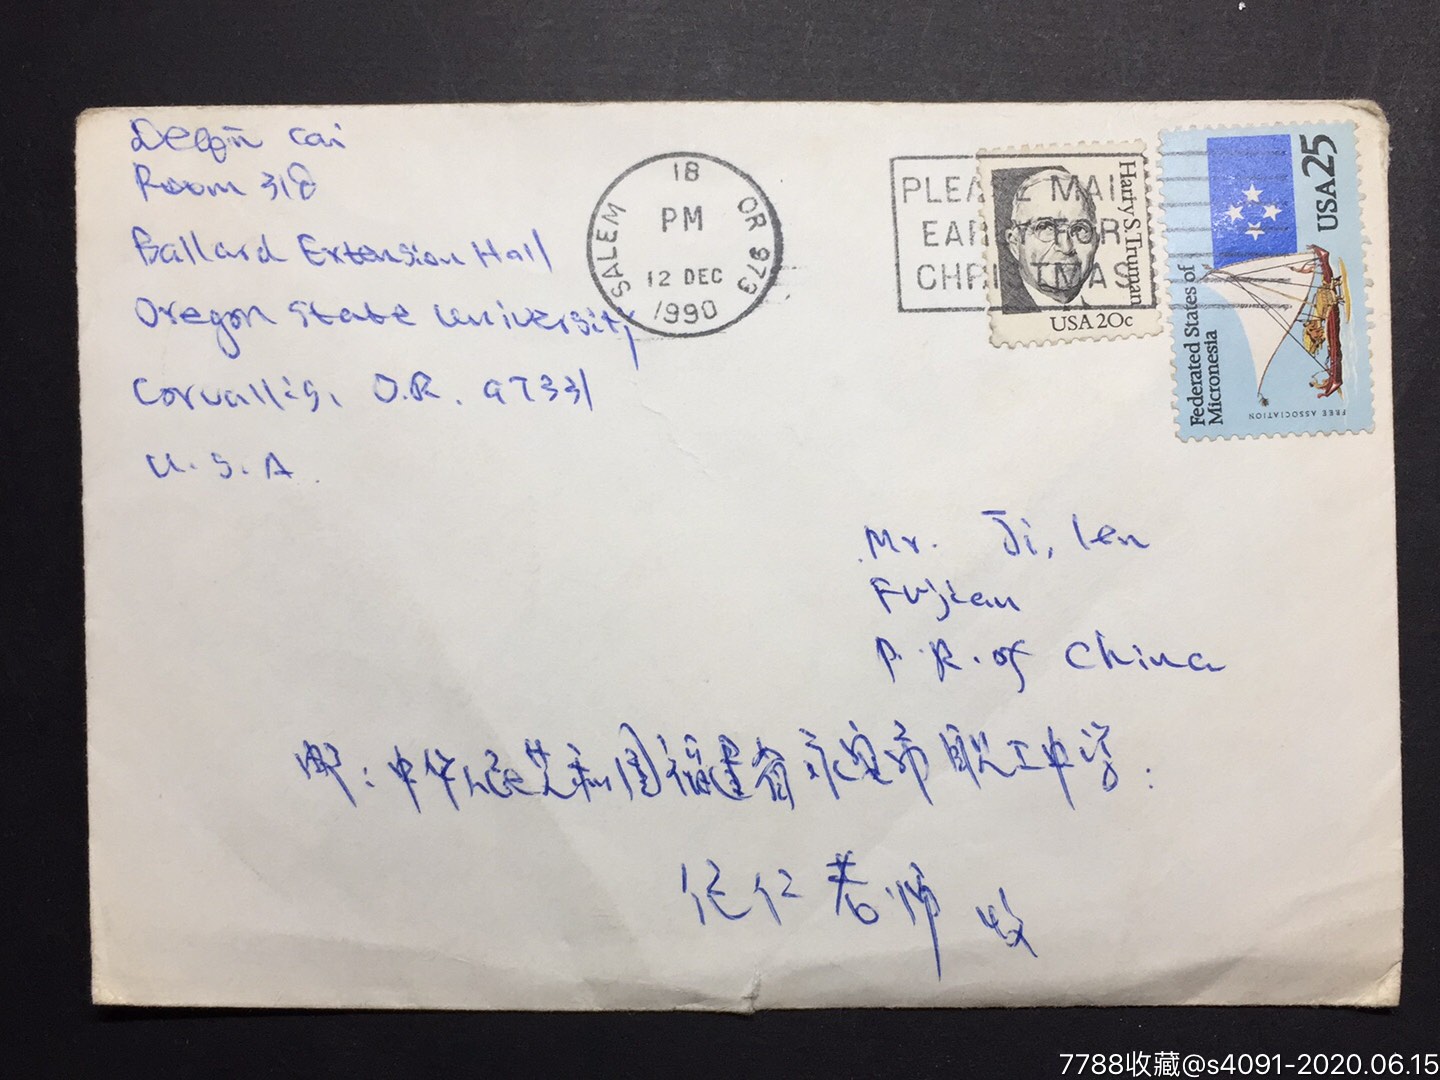 Deqin Cai
Room 318
Ballard Extension Hall
Oregon State University
Corvallis, O.R. 97331
U.S.A.
SALEM OR 973
18
PM
12 DEC
1990
PLEASE MAIL
EARLY FOR
CHRISTMAS
Harry S. Truman
USA 20c
USA 25
Federated States of
Micronesia
FREE ASSOCIATION
Mr. Ji, len
Fujian
P.R. of China
邮:中华人民共和国福建省永安市职工中学:
纪仁老师 收
7788收藏@s4091-2020.06.15